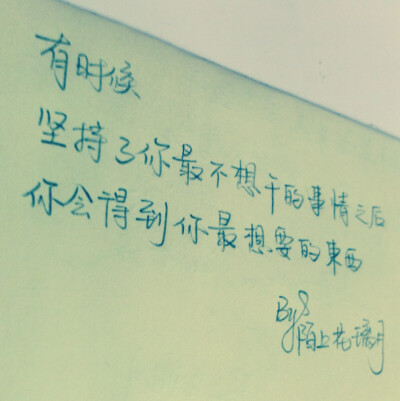 有时候
坚持了你最不想干的事情之后
你会得到你最想要的東西
By 陌上花璃月